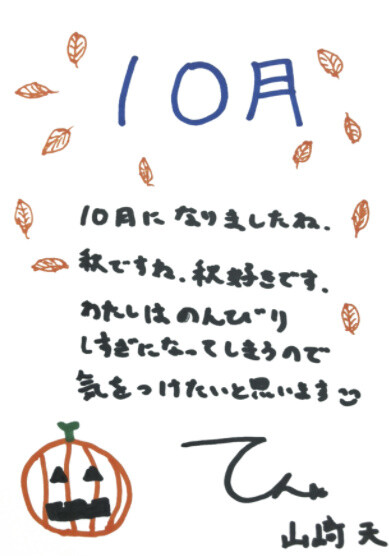 10月
10月になりましたね.
秋ですね.秋好きです.
わたしはのんびり
しすぎになってしまうので
気をつけたいと思います
てん
山﨑 天